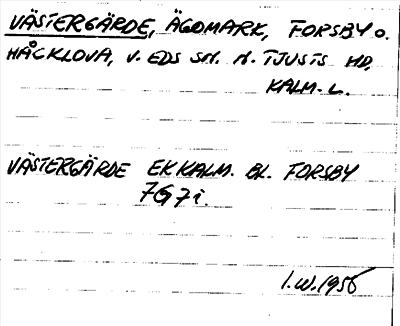 VÄSTERGÄRDE, ÄGOMARK, FORSBY O.
HÅCKLOVA, V. EDS SN. N. TJUSTS HD,
KALM. L.
VÄSTERGÄRDE EK KALM. BL. FORSBY
7G7i.
I.W.1956